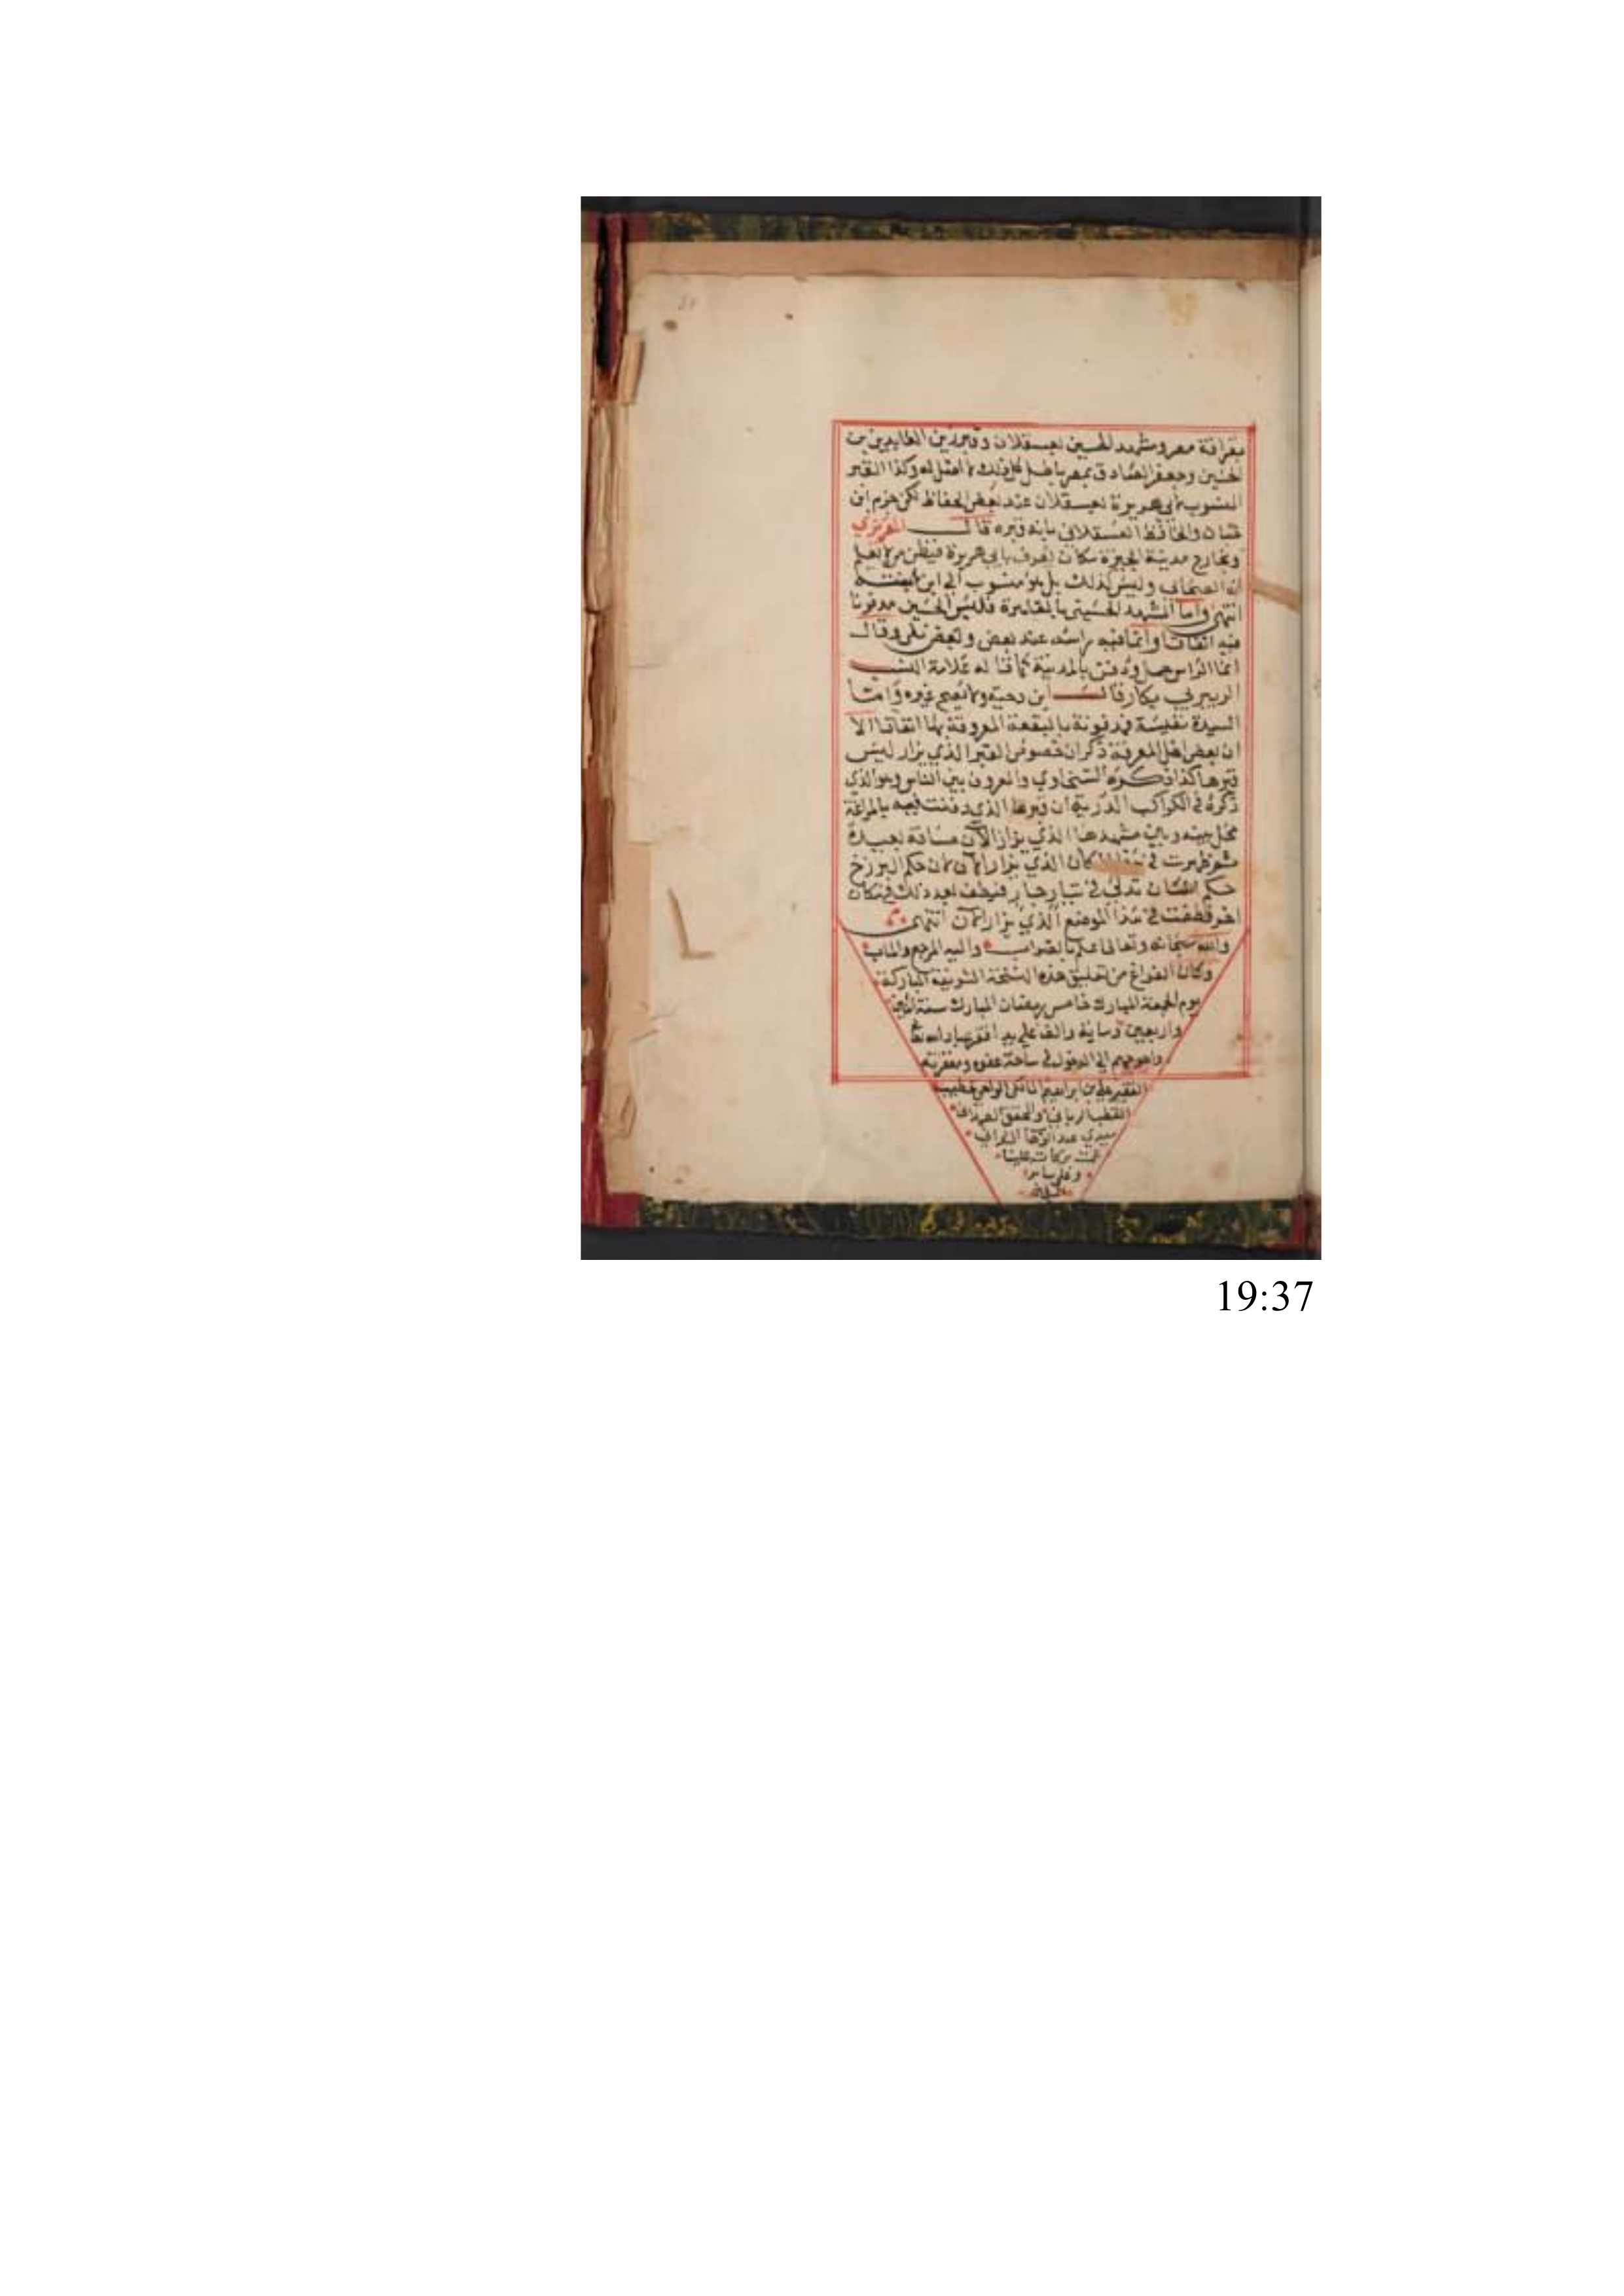 بقرافة مصر ومشهد الحسين بعسقلان وقبر زين العابدين بن
الحسين وجعفر الصادق بمصر باطل كل ذلك ولا اصل له وكذا القبر
المنسوب لابي هريرة بعسقلان عند بعض الحفاظ لكن جزم ابن
حبان والحافظ العسقلاني بانه قبره قال المقريزي
وبخارج مدينة الجيزة مكان يعرف بابي هريرة فيظن من لا يعلم
انه الصحابي وليس كذلك بل هو منسوب الى ابن ابنته
انتهى واما المشهد الحسيني بالقاهرة فليس الحسين مدفونا
فيه اتفاقا وانما فيه راسه عند بعض وبعض نفى وقال
انما الراس حمل ودفن بالمدينة كما قاله علامة النسب
الزبيري بكار قال ابن دحية ولا يصح غيره واما
السيدة نفيسة فمدفونة بالبقعة المعروفة بها اتفاقا الا
ان بعض اهل المعرفة ذكر ان خصوص القبر الذي يزار ليس
قبرها كذا ذكره السخاوي والمعروف بين الناس وهو الذي
ذكره في الكواكب الدرية ان قبرها الذي دفنت فيه بالمراغة
محل بينه وبين مشهدها الذي يزار الآن مسافة بعيدة
ثم ظهرت في هذا المكان الذي يزار الآن لان حكم البرزخ
حكم انسان تدلى في تيار جار فيطف بعد ذلك في مكان
اخر فطفت في هذا الموضع الذي يزار الآن انتهى
والله سبحانه وتعالى اعلم بالصواب واليه المرجع والماب
وكان الفراغ من تعليق هذه النسخة الشريفة المباركة
يوم الجمعة المبارك خامس رمضان المبارك سنة
واربعين وماية والف على يد افقر عباد الله
واحوجهم الى الدخول في ساحة عفوه ومغفرته
الفقير علي بن ابراهيم المالكي خطيب
القطب الرباني والمحقق الصمداني
سيدي عبد الوهاب الشعراني
عمت بركاته علينا
وعلى ساير